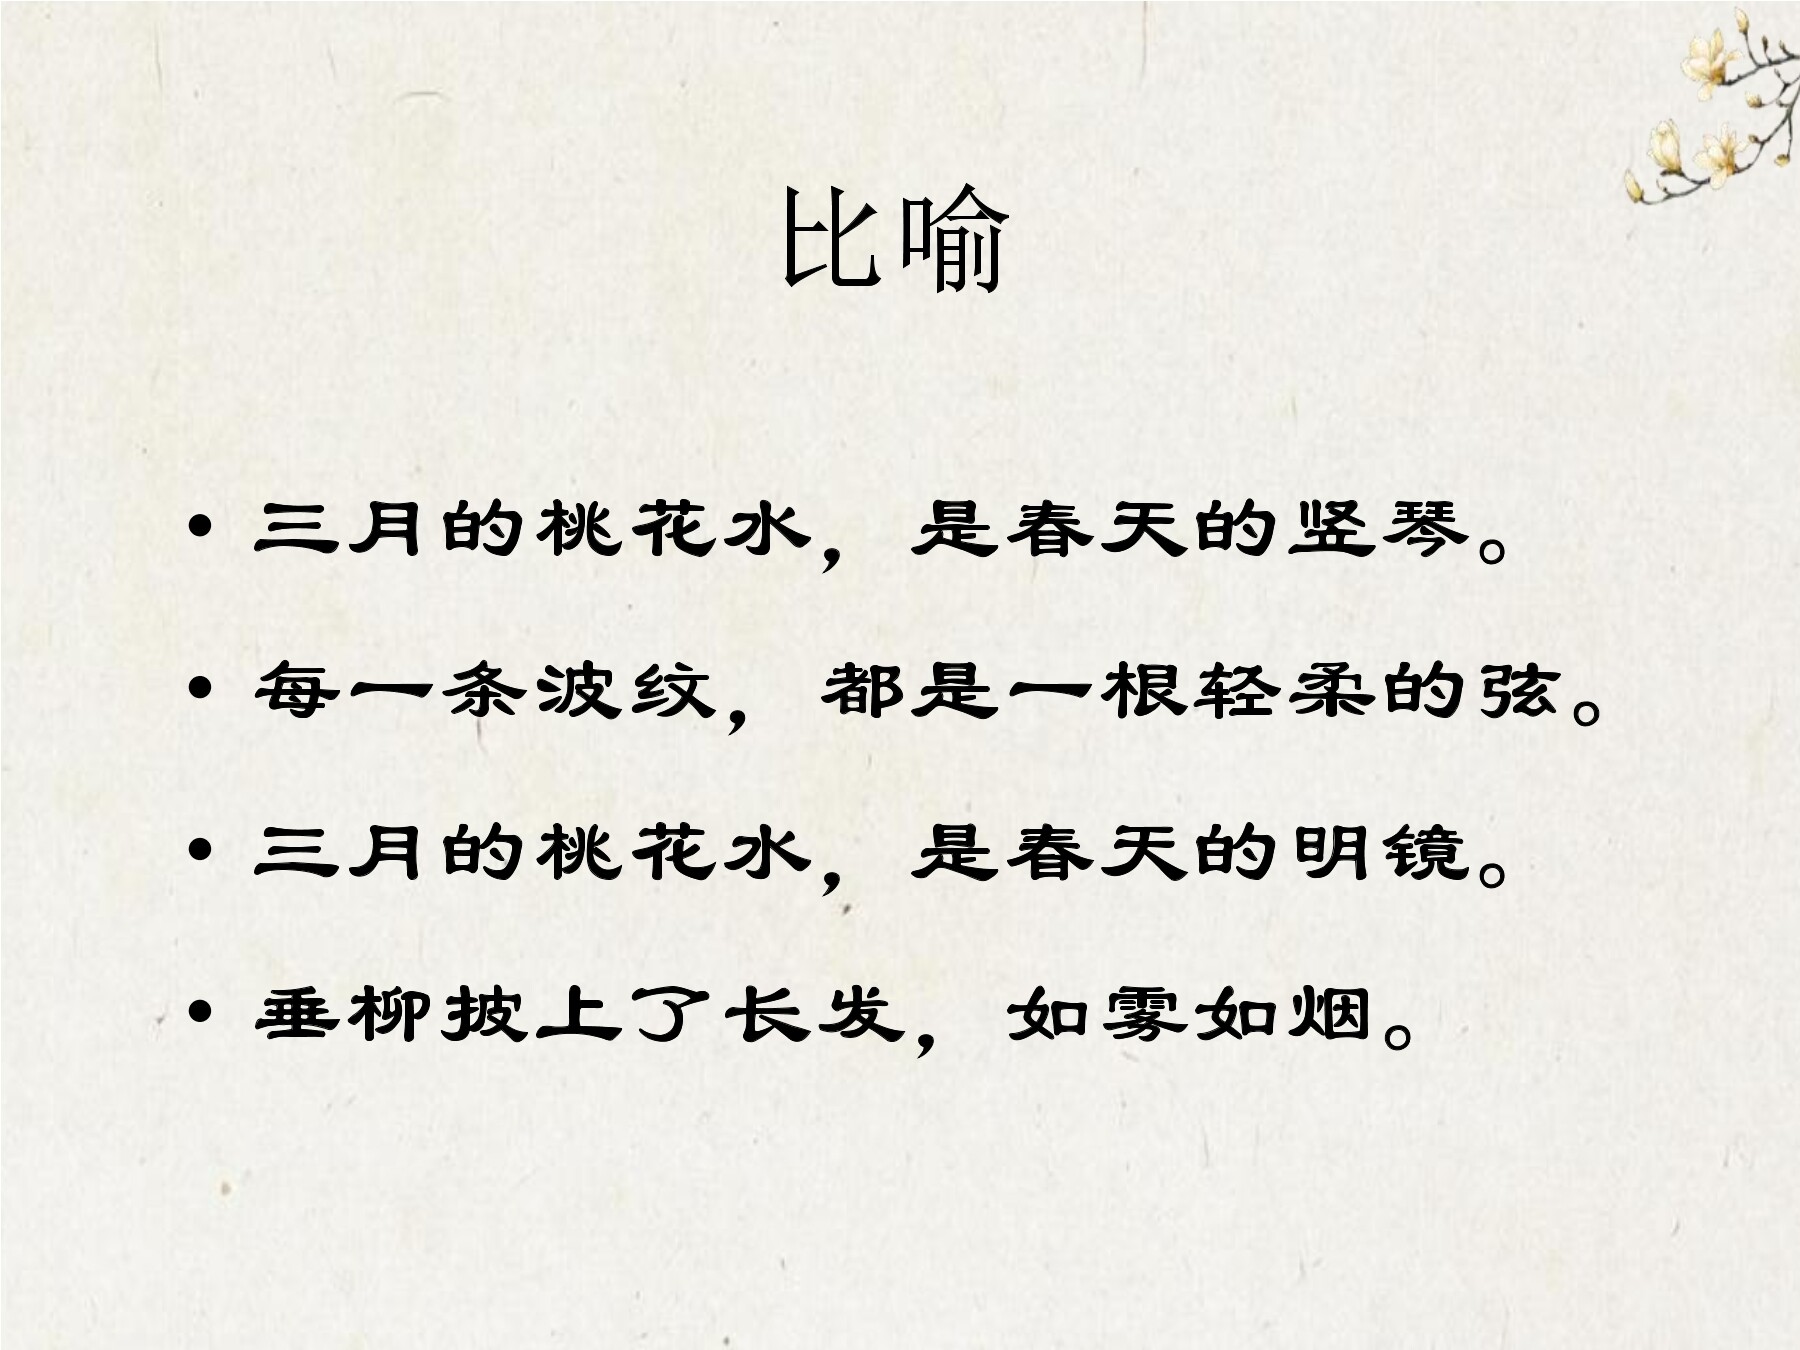 比喻
• 三月的桃花水，是春天的竖琴。
• 每一条波纹，都是一根轻柔的弦。
• 三月的桃花水，是春天的明镜。
• 垂柳披上了长发，如雾如烟。